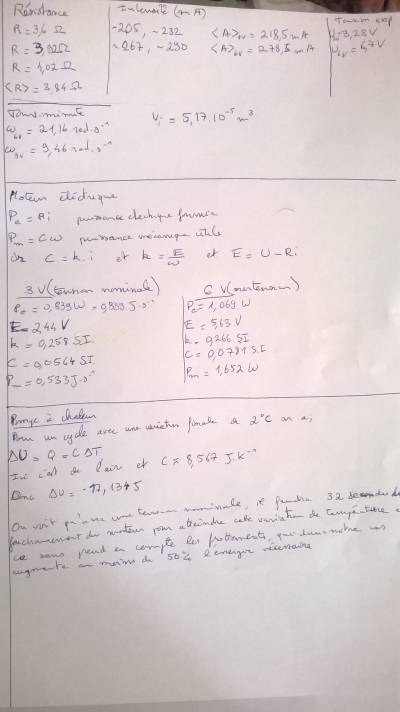 Résistance
R = 3,6 Ω
R = 3,92Ω
R = 1,02 Ω
<R> = 3,84 Ω
Intensité (mA)
-205, -232
-267, -290
<A>6V = 218,5 mA
<A>9V = 278,5 mA
Tension exp
3,28V
6,7V
Tours.minute
ω6V = 21,16 rad.s⁻¹
ω9V = 9,46 rad.s⁻¹
Vi = 5,17.10⁻⁵ m³
Moteur électrique
Pe = Ai puissance électrique fournie
Pm = Cω puissance mécanique utile
Or C = k.i et k = E/ω et E = U - Ri
3 V (tension nominale)
Pe = 0,839W = 0,839 J.s⁻¹
E = 2,44 V
k = 0,258 S.I.
C = 0,0564 S.I.
Pm = 0,533 J.s⁻¹
6 V
Pe = 1,069 W
E = 5,63 V
k = 0,266 S.I.
C = 0,0781 S.I
Pm = 1,652 W
Pompe à chaleur
Pour un cycle avec une variation finale de 2°C on a;
ΔU = Q = CΔT
Ici c'est de l'air et C = 8,567 J.K⁻¹
Donc ΔU = -17,134 J
On voit qu'avec une tension nominale, il faudra 32 secondes de
fonctionnement du moteur pour atteindre cette variation de température
ce sans prend en compte les frottements, qui dans notre cas
augmente au moins de 50% l'énergie nécessaire